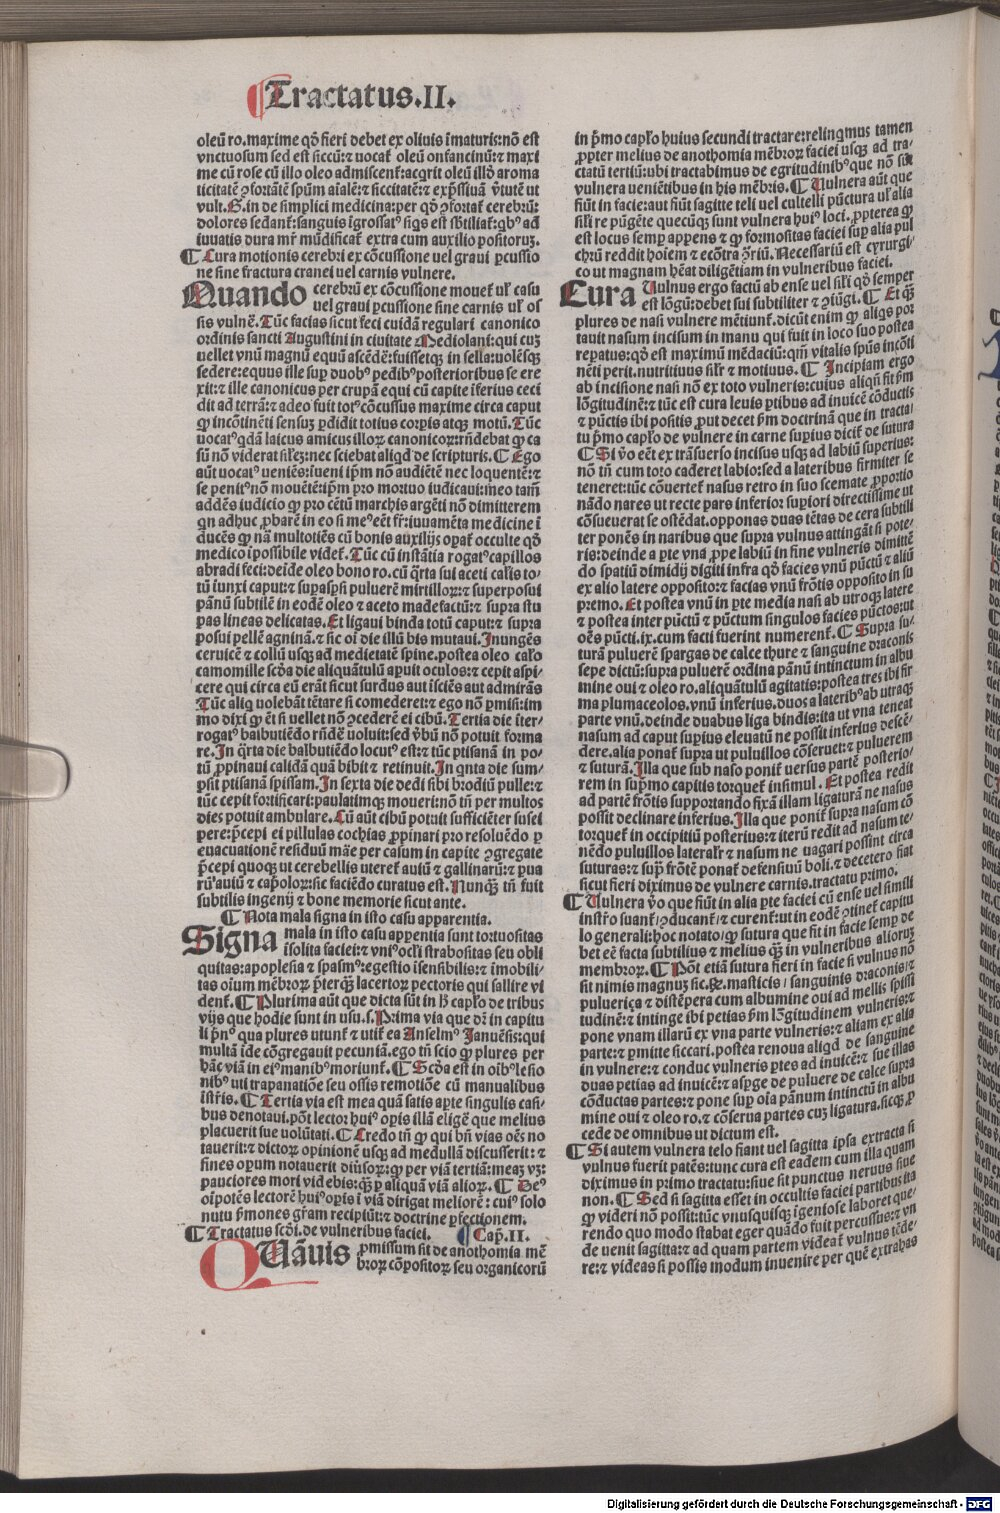 Tractatus.II.
oleū ro.maxime qđ fieri debet ex oliuis īmaturis:nō est
vnctuosum sed est siccū:ꝛ uocať oleū onfancinū:ꝛ maxi
me cū rose cū illo oleo admiscenť:acq̄rit oleū illđ aroma
ticitatē ꝯfortātē spūm aīalē:ꝛ siccitatē:ꝛ exp̄ssiuā v̄tutē ut
vult.S.in de simplici medicina:per qđ ꝯfortať cerebrū:
dolores sedanť:sanguis īgrossatꝰ siqs est sb̄tiliať:qbꝰ ad
iuuatis dura mr̄ mūdificať extra cum auxilio positoruꝫ.
¶ Cura motionis cerebri ex cōcussione uel graui ꝑcussio
ne sine fractura cranei uel carnis vulnere.
Quando cerebrū ex cōcussione mouet uľ casu
uel graui ꝑcussione sine carnis uľ os
sis vulnē.Tūc facias sicut feci cuidā regulari canonico
ordinis sancti Augustini in ciuitate Mediolani:qui cuꝫ
uellet vnū magnū equū ascēdē:fuissetqꝫ in sella:uolēsqꝫ
sedere:equus ille sup duobꝰ pedibꝰ posterioribus se ere
xit:ꝛ ille canonicus per crupā equi cū capite īferius ceci
dit ad terrā:ꝛ adeo fuit totꝰ cōcussus maxime circa caput
ꝙ incōtinēti sensuꝫ ꝑdidit totius corꝑis atqꝫ motū.Tūc
uocatꝰ qdā laicus amicus illoꝝ canonicoꝝ:rñdebat ꝙ ca
sū nō viderat silꝫ:nec sciebat aliqd de scripturis.¶ Ego
aūt uocatꝰ ueniēs:īueni ip̄m nō audiētē nec loquentē:ꝛ
se penitꝰ nō mouētē:ip̄m pro mortuo iudicaui:meo tam̄
addēs iudicio ꝙ pro cētū marchis argēti nō dimitterem
qn adhuc ꝓbarē in eo si meꝰ eēt fr̄:iuuamēta medicine ī
ducēs ꝙ nā multotiēs cū bonis auxilijs opať occulte qđ
medico īpossibile videť.Tūc cū instātia rogatꝰ capillos
abradi feci:deīde oleo bono ro.cū q̄rta sui aceti calīs to-
tū iunxi caput:ꝛ supasp̄si puluerē mirtilloꝝ:ꝛ superposui
pānū subtilē in eodē oleo ꝛ aceto madefactū:ꝛ supra stu
pas lineas delicatas.Et ligaui binda totū caput:ꝛ supra
posui pellē agninā.ꝛ sic oī die illū bis mutaui.Inungēs
ceruicē ꝛ collū usqꝫ ad medietatē spine.postea oleo calo
camomille scđa die aliquātulū aꝑuit oculos:ꝛ cepit aspi-
cere qui circa eū erāt sicut surdus aut īsciēs aut admirās
Tūc aliq uolebāt tētare si comederet:ꝛ ego nō ꝑmisi:im
mo dixi ꝙ et si uellet nō ꝯcederē ei cibū.Tertia die īter-
rogatꝰ balbutiēdo rñdē uoluit:sed v̄bū nō potuit forma
re.In q̄rta die balbutiēdo locutꝰ est:ꝛ tūc ptisanā in po-
tū ꝓpinaui calidā quā bibit ꝛ retinuit.In qnta die sum-
psit ptisanā spissam.In sexta die dedi sibi brodiū pulle:ꝛ
tūc cepit fortificari:paulatimqꝫ moueri:nō tñ per multos
dies potuit ambulare.Cū aūt cibū potuit sufficiēter susci
pere:p̄cepi ei pillulas cochias ꝓpinari pro resoluēdo ꝑ
euacuationē residuū māe per casum in capite ꝯgregate
p̄cepi quoqꝫ ut cerebellis utereť auiū ꝛ gallinarū:ꝛ pua
rū auiū ꝛ cap̄oloꝝ:sic faciēdo curatus est.Nunqꝫ tñ fuit
subtilis ingenij ꝛ bone memorie sicut ante.
¶ Nota mala signa in isto casu apparentia.
Signa mala in isto casu apparentia sunt tortuositas
īsolita faciei:ꝛ vniꝰ ocľi strabositas seu obli
quitas:apoplesia ꝛ spasmꝰ:egestio īsensibilis:ꝛ īmobili-
tas oīum mēbroꝝ p̄terqꝫ lacertoꝝ pectoris qui sallire vi
denť.¶ Plurima aūt que dicta sūt in h̄ capľo de tribus
vijs que hodie sunt in usu.s.Prima via que dr̄ in capitu
li p̄nꝰ qua plures utunť ꝛ utiť ea Anselmꝰ Januēsis:qui
multā īde cōgregauit pecuniā.ego tñ scio ꝙ plures per
hāc viā in eiꝰ manibꝰ moriunť.¶ Scđa est in oībꝰ lesio
nibꝰ uti trapanatiōe seu ossis remotiōe cū manualibus
īstr̄is.¶ Tertia via est mea quā satis aꝑte singulis casi-
bus denotaui.pōt lector huiꝰ opis illā eligē que melius
placuerit sue uolūtati.¶ Credo tñ ꝙ qui bñ vias oēs no
tauerit:ꝛ dictoꝝ opinionē usqꝫ ad medullā discusserit:ꝛ
fines opum notauerit diūsoꝝ:ꝙ per viā tertiā:meaꝫ vꝫ:
pauciores mori videbis:qꝫ ꝑ aliquā viā alioꝝ.¶ Deꝰ
oīpotēs lectorē huiꝰ opis ī viā dirigat meliorē:cuiꝰ solo
nutu p̄mones gr̄am recipiūt:ꝛ doctrine ꝑfectionem.
¶ Tractatus scđi.de vulneribus faciei. ¶ Cap.II.
QUāuis ꝓmissum sit de anothomia mē
broꝝ cōpositoꝝ seu organicorū
in p̄mo capľo huius secundi tractare:relinqmus tamen
ꝓpter melius de anothomia mēbroꝝ faciei usqꝫ ad tra-
ctatū tertiū:ubi tractabimus de egritudinibꝰ que nō sūt
vulnera ueniētibus in his mēbris.¶ Vulnera aūt que
fiūt in facie:aut fiūt sagitte teli uel cultelli pūctura uľ alia
sili re pūgēte quecūqꝫ sunt vulnera huiꝰ loci.ꝓpterea ꝙ
est locus semp appens ꝛ ꝙ formositas faciei sup alia pul
chrū reddit hoīem ꝛ ecōtra q̄riū.Necessariū est cyrurgi-
co ut magnam hēat diligētiam in vulneribus faciei.
Cura Vulnus ergo factū ab ense uel sili qđ semper
est lōgū:debet sui subtiliter ꝛ ꝯiūgi.¶ Et qꝫ
plures de nasi vulnere mētiunť.dicūt enim ꝙ aliqs por
tauit nasum incisum in manu qui fuit in loco suo postea
reꝑatus:qđ est maximū mēdaciū:qm̄ vitalis spūs incōti
nēti perit.nutritiuus silr ꝛ motiuus.¶ Incipiam ergo
ab incisione nasi nō ex toto vulneris:cuius aliqñ fit p̄m
lōgitudinē:ꝛ tūc est cura leuis ꝑtibus ad inuicē cōductis
ꝛ pūctis ibi positis ꝓut decet p̄m doctrinā que in tracta-
tu p̄mo capľo de vulnere in carne suꝑius diciť de sutura
¶ Si v̄o eēt ex trāsuerso incisus usqꝫ ad labiū superius:
nō tñ cum toto caderet labio:sed a lateribus firmiter se
teneret:tūc cōuerteť nasus retro in suo scemate ꝓportio
nādo nares ut recte pars inferior supiori directissime ut
cōsueuerat se ostēdat.opponas duas tētas de cera subtili
ter ponēs in naribus que supra vulnus attingāt si pote-
ris:deinde a ꝑte vna ꝓpe labiū in fine vulneris dimittē
do spatiū dimidij digiti infra qđ facies vnū pūctū ꝛ aliū
ex alio latere opposito:ꝛ facias vnū frōtis opposito in su
premo.Et postea vnū in ꝑte media nasi ab utroqꝫ latere
ꝛ postea inter pūctū ꝛ pūctum singulos facies pūctos:ut
oēs pūcti.ix.cum facti fuerint numerenť.¶ Supra su-
turā puluerē spargas de calce thure ꝛ sanguine draconis
sepe dictū:supra puluerē ordina pānū intinctum in albu
mine oui ꝛ oleo ro.aliquātulū agitatis:postea tres ibi fir
ma plumaceolos.vnū inferius.duos a lateribꝰ ab utraqꝫ
parte vnū.deinde duabus liga bindis:ita ut vna teneat
nasum ad caput suꝑius eleuatū ne possit inferius descē-
dere.alia ponať supra ut puluillos cōseruet:ꝛ puluerem
ꝛ suturā.Illa que sub naso poniť uersus partē posterio-
rem in sup̄mo capitis torqueť insimul.Et postea redit
ad partē frōtis supportando fixā illam ligaturā ne nasus
possit declinare inferius.Illa que poniť supra nasum cō
torqueť in occipitiū posterius:ꝛ iterū redit ad nasum te-
nēdo puluillos lateralr ꝛ nasum ne uagari possint circa
suturas:ꝛ sup̄ frōtē ponať defensiuū boli.ꝛ decetero fiat
sicut fieri diximus de vulnere carnis.tractatu primo.
¶ Vulnera v̄o que fiūt in alia ꝑte faciei cū ense uel simili
instr̄o suanť:ꝯducanť:ꝛ curenť:ut in eodē ꝯtineť capitu
lo generali:hoc notato:ꝙ sutura que fit in facie semp de
bet eē facta subtilius ꝛ melius qꝫ in vulneribus alioruꝫ
membroꝝ.¶ Pōt etiā sutura fieri in facie si vulnus nō
sit nimis magnuꝫ sic.℞.masticis/sanguinis draconis:ꝛ
pulueriça ꝛ distēpera cum albumine oui ad mellis spissi
tudinē:ꝛ intinge ibi petias p̄m lōgitudinem vulneris:ꝛ
pone vnam illarū ex vna parte vulneris:ꝛ aliam ex alia
parte:ꝛ ꝑmitte siccari.postea renoua aliqd de sanguine
in vulnere:ꝛ conduc vulneris ꝑtes ad inuicē:ꝛ sue illas
duas petias ad inuicē:ꝛ asꝑge de puluere de calce supra
cōductas partes:ꝛ pone sup oīa pānum intinctū in albu
mine oui ꝛ oleo ro.ꝛ cōserua partes cuꝫ ligatura.sicqꝫ ꝓ
cede de omnibus ut dictum est.
¶ Si autem vulnera telo fiant uel sagitta ipsa extracta si
vulnus fuerit patēs:tunc cura est eadem cum illa quam
diximus in primo tractatu:siue sit punctus neruus siue
non.¶ Sed si sagitta esset in occultis faciei partibus ita
ꝙ videri nō possit:tūc vnusquisqꝫ īgeniose laboret que-
rendo quo modo stabat eger quādo fuit percussus:ꝛ vn
de uenit sagitta:ꝛ ad quam partem videať vulnus tēde-
re:ꝛ videas si possis modum inuenire per quē extrahas
Digitalisierung gefördert durch die Deutsche Forschungsgemeinschaft - DFG